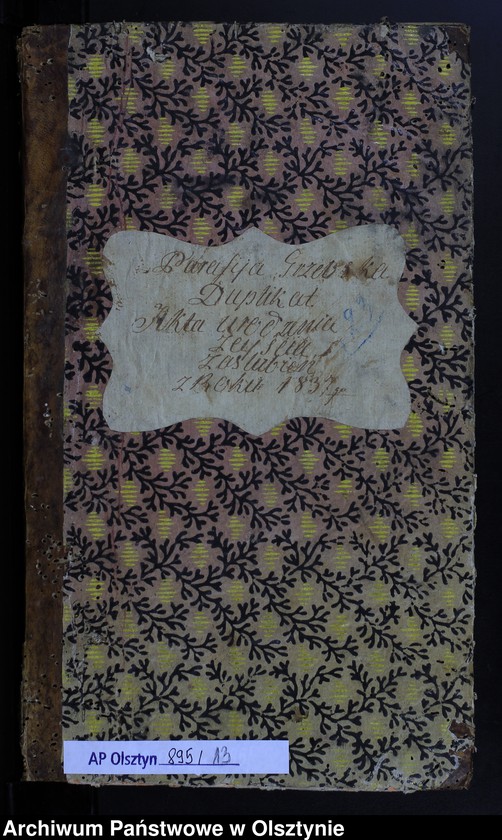 Parafija Grzebska
Duplikat
Akta urodzenia
Zejścia i
Zaślubień
z Roku 1837
AP Olsztyn 895 / 13
Archiwum Państwowe w Olsztynie